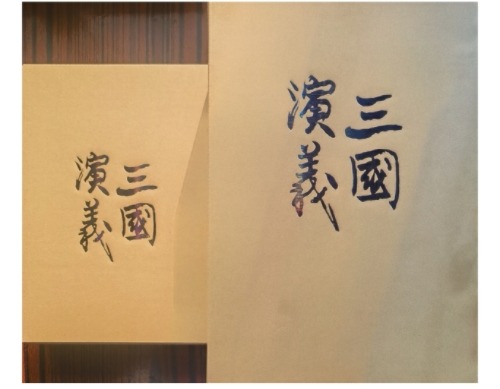 三國
演義
三國
演義